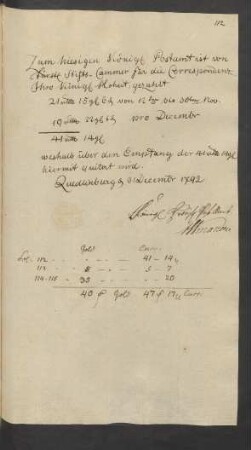 112
Zum hiesigen Königl. Postamt ist von
Stifts-Cammer für die Correspondence
Ihro Königl. Hoheit, gezahlt
21 15 gl 6 vom 1ten bis 30ten Nov.
19 22 gl 6 pro December
41 14 gl
weshalb über den Empfang der 41 14 gl
hiermit quitiret wird.
Quedlinburg d. 31 December 1792
Königl. Preuß. Post Amt
Gold Cour.
112 41 - 14
113 5 5 - 7
114-115 35 20
40 Gold 47 Cour.